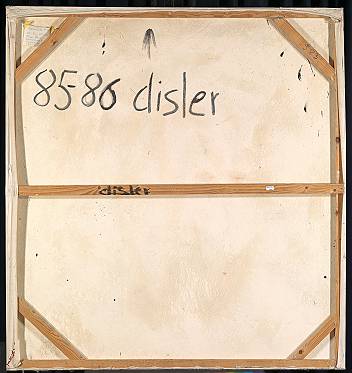 85-86 disler
disler